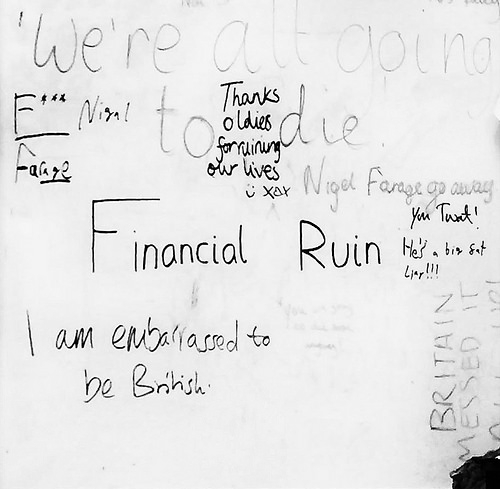 'We're all going
to die.
F*** Nigel
Farage
Thanks
oldies
for ruining
our lives
xox
Nigel Farage go away
you Twat!
He's a big fat
liar!!!
Financial Ruin
I am embarrassed to
be British.
BRITAIN
MESSED IT